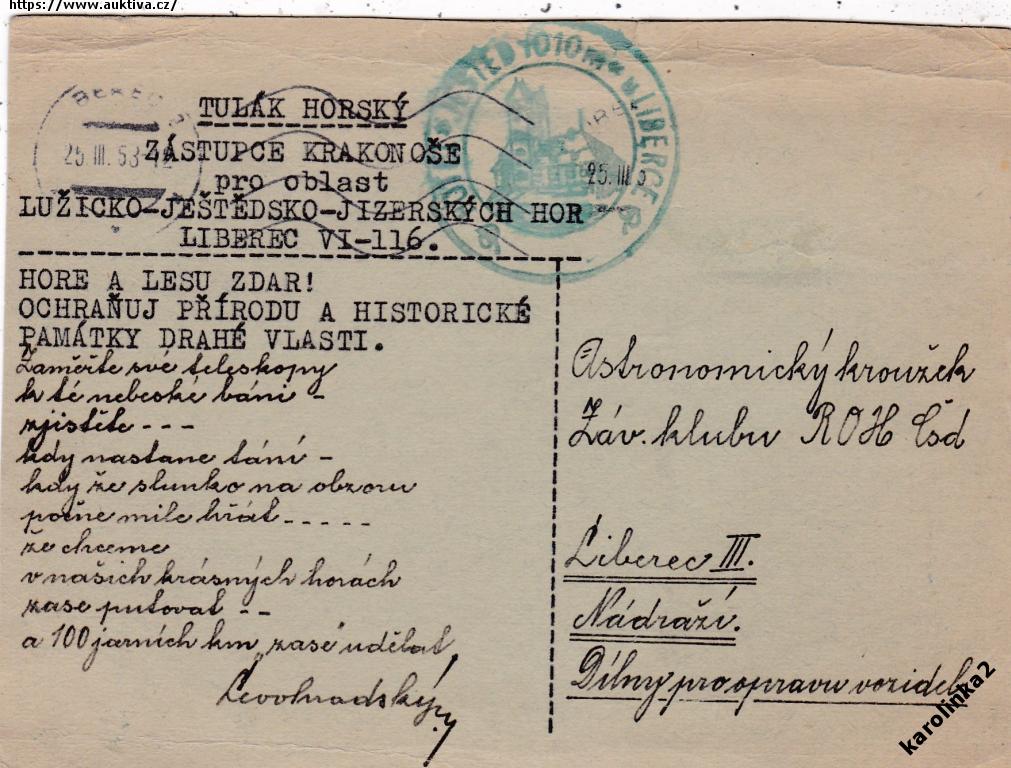 https://www.auktiva.cz/
JEŠTĚD 1010m u LIBERCE
25. III. 53-12
25. III. 5
TULÁK HORSKÝ
ZÁSTUPCE KRAKONOŠE
pro oblast
LUŽICKO-JEŠTĚDSKO-JIZERSKÝCH HOR
LIBEREC VI-116.
HORE A LESU ZDAR!
OCHRAŇUJ PŘÍRODU A HISTORICKÉ
PAMÁTKY DRAHÉ VLASTI.
Zaměřte své teleskopy
k té nebeské báni -
zjistěte - - -
kdy nastane tání -
kdy že slunko na obzoru
počne mile hřát - - - - -
že chceme
v našich krásných horách
zase putovat - -
a 100 jarních km „zase udělat"
Astronomický kroužek
Záv. klubu ROH Čsd
Liberec III.
Nádraží.
Dílny pro opravu vozidel
karolinka2